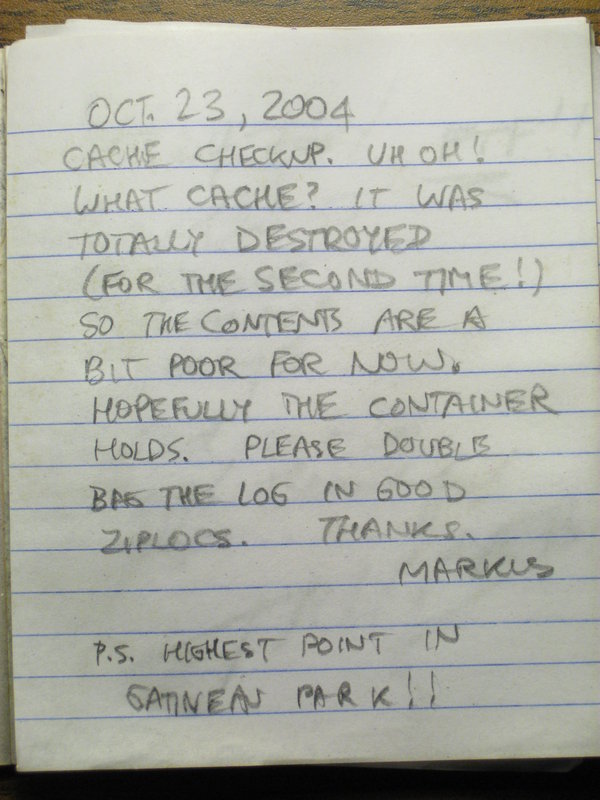 OCT. 23, 2004
CACHE CHECKUP. UH OH!
WHAT CACHE? IT WAS
TOTALLY DESTROYED
(FOR THE SECOND TIME!)
SO THE CONTENTS ARE A
BIT POOR FOR NOW.
HOPEFULLY THE CONTAINER
HOLDS. PLEASE DOUBLE
BAG THE LOG IN GOOD
ZIPLOCS. THANKS.
MARKUS
P.S. HIGHEST POINT IN
GATINEAU PARK!!